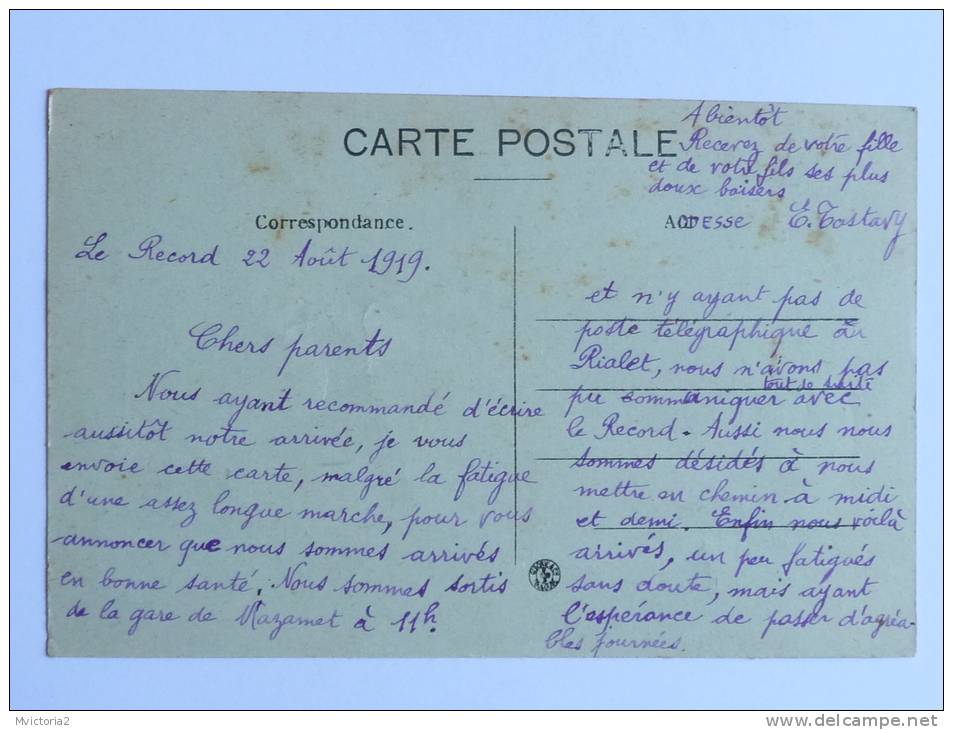 CARTE POSTALE
Correspondance.
Le Record 22 Août 1919.
Chers parents
Nous ayant recommandé d'écrire
aussitôt notre arrivée, je vous
envoie cette carte, malgré la fatigue
d'une assez longue marche, pour vous
annoncer que nous sommes arrivés
en bonne santé. Nous sommes sortis
de la gare de Mazamet à 11h.
ADRESSE
et n'y ayant pas de
poste télégraphique au
Rialet, nous n'avons pas
tout de suite
pu communiquer avec
le Record. Aussi nous nous
sommes désidés à nous
mettre en chemin à midi
et demi. Enfin nous voilà
arrivés, un peu fatigués
sans doute, mais ayant
l'espérance de passer d'agréa-
bles journées.
A bientôt
Recevez de votre fille
et de votre fils ses plus
doux baisers
E. Tostavy
Mvictoria2
delcampe.net